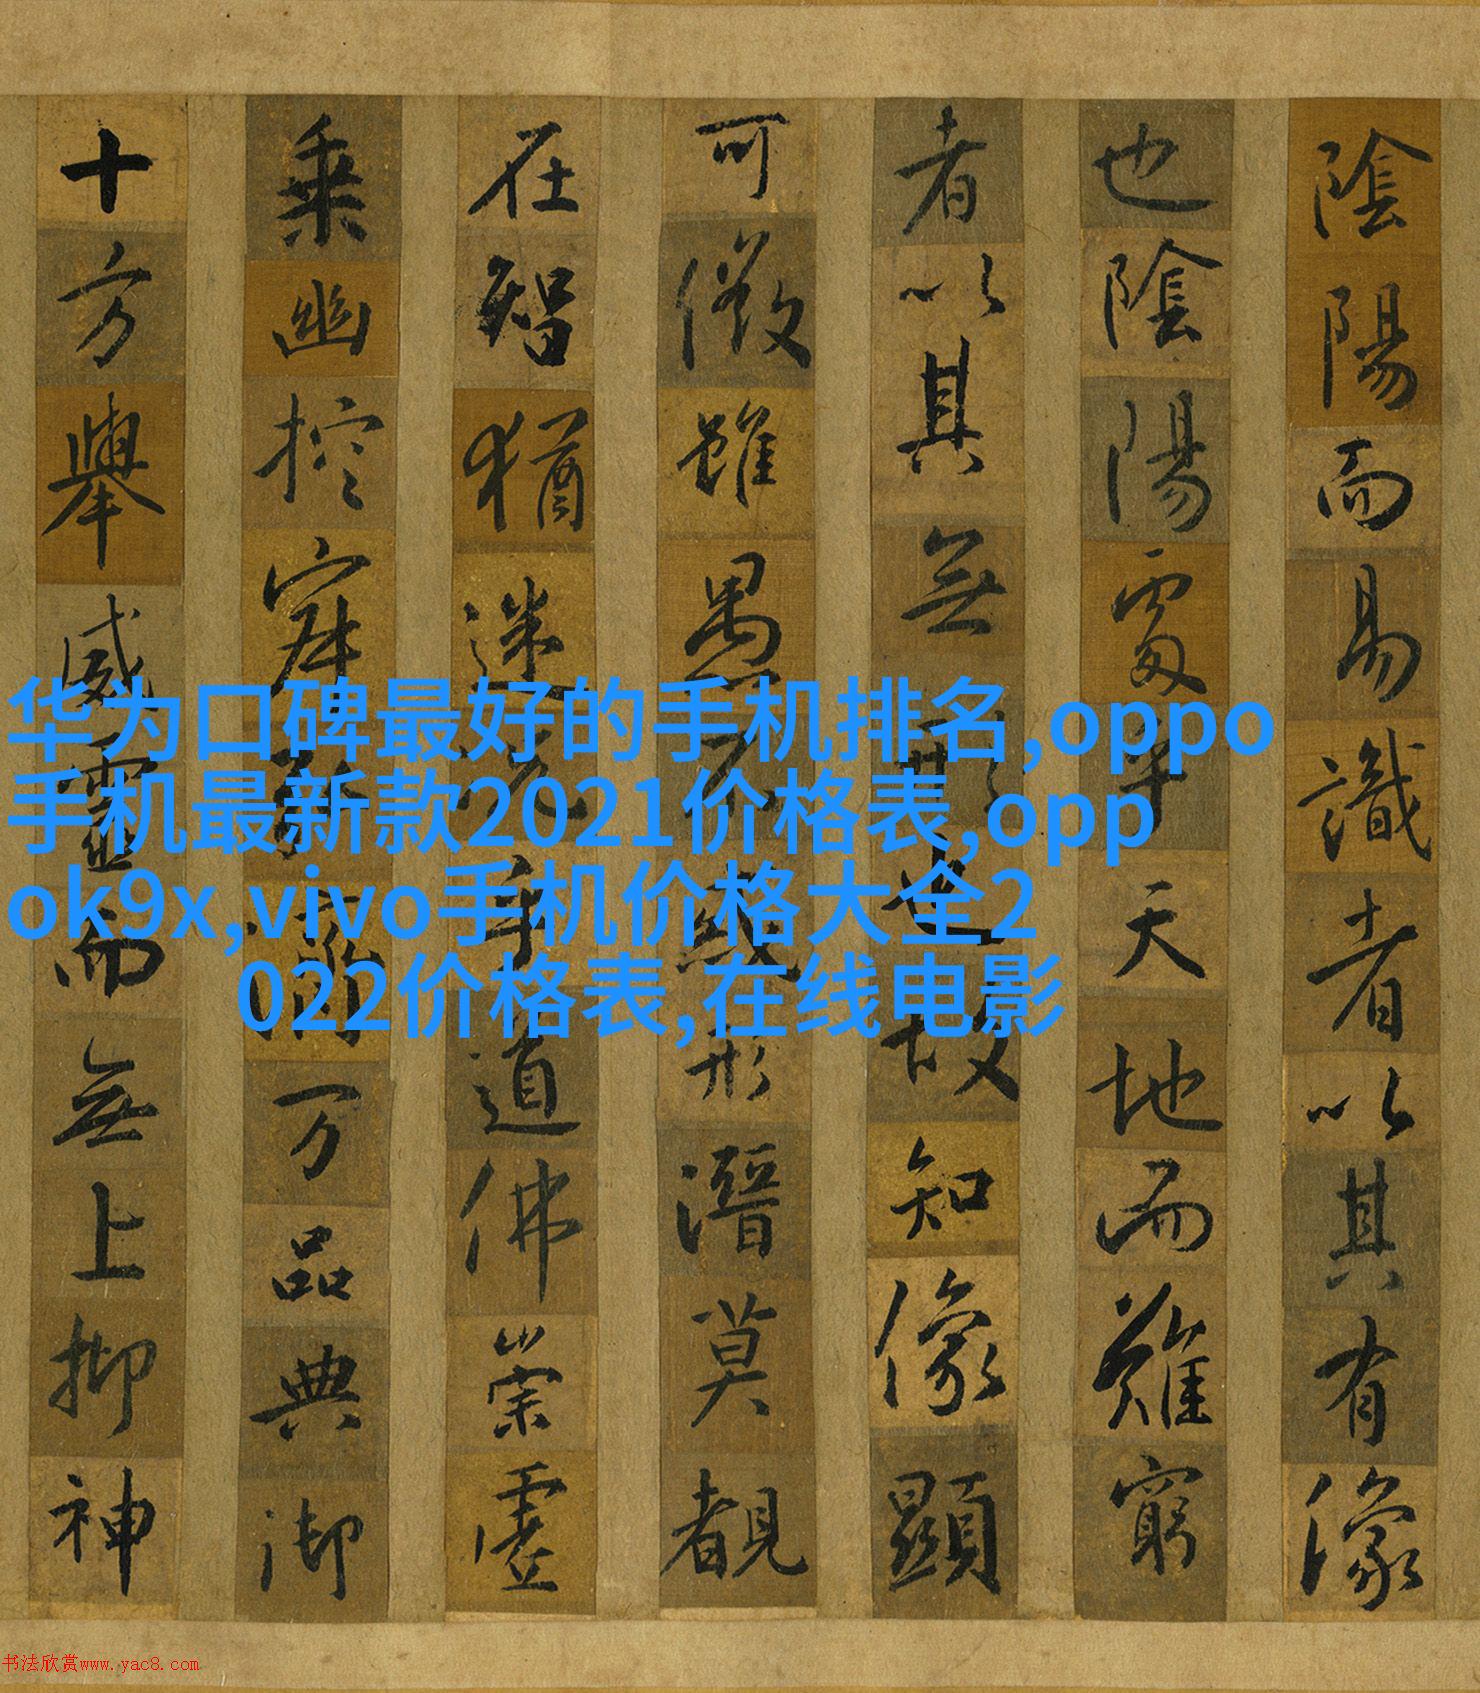 陰陽而易識者以其有像
也陰陽處乎天地而難窮
者以其無形也故知像顯
可徵雖愚不惑形潛莫覩
在智猶迷况乎道佛崇虛
乘幽控寂弘濟万品典御
十方舉威靈而無上抑神
华为口碑最好的手机排名,oppo
手机最新款2021价格表,opp
ok9x,vivo手机价格大全2
022价格表,在线电影
书法欣赏www.yac8.com